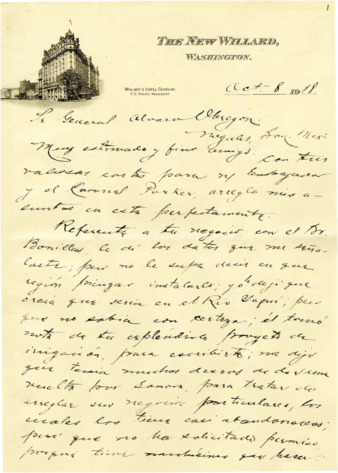 1
THE NEW WILLARD,
WASHINGTON.
WILLARD'S HOTEL COMPANY
Oct 8, 1918.
Sr General Alvaro Obregón
Nogales, Son. Mex.
Muy estimado y fino amigo: con tus
valiosas cartas para ny Embajador
y el Coronel Parker, arreglé mis a-
suntos en esta perfectamente.
Referente a tu negocio con el Sr.
Bonillas, le dí los datos que me seña-
laste; pero no le supe decir en que
región piensas instalarlo; yo le dejé que
creía que sería en el Rio Yaqui; pero
que no sabía con certeza; él tomó
nota de tu espléndido proyecto de
irrigación, para escribirte; me dijo
que tenía muchos deseos de darse una
vuelta por Sonora, para tratar de
arreglar sus negocios particulares, los
cuales los tiene casi abandonados;
pero que no ha solicitado permiso
porque tiene muchísimo que hacer